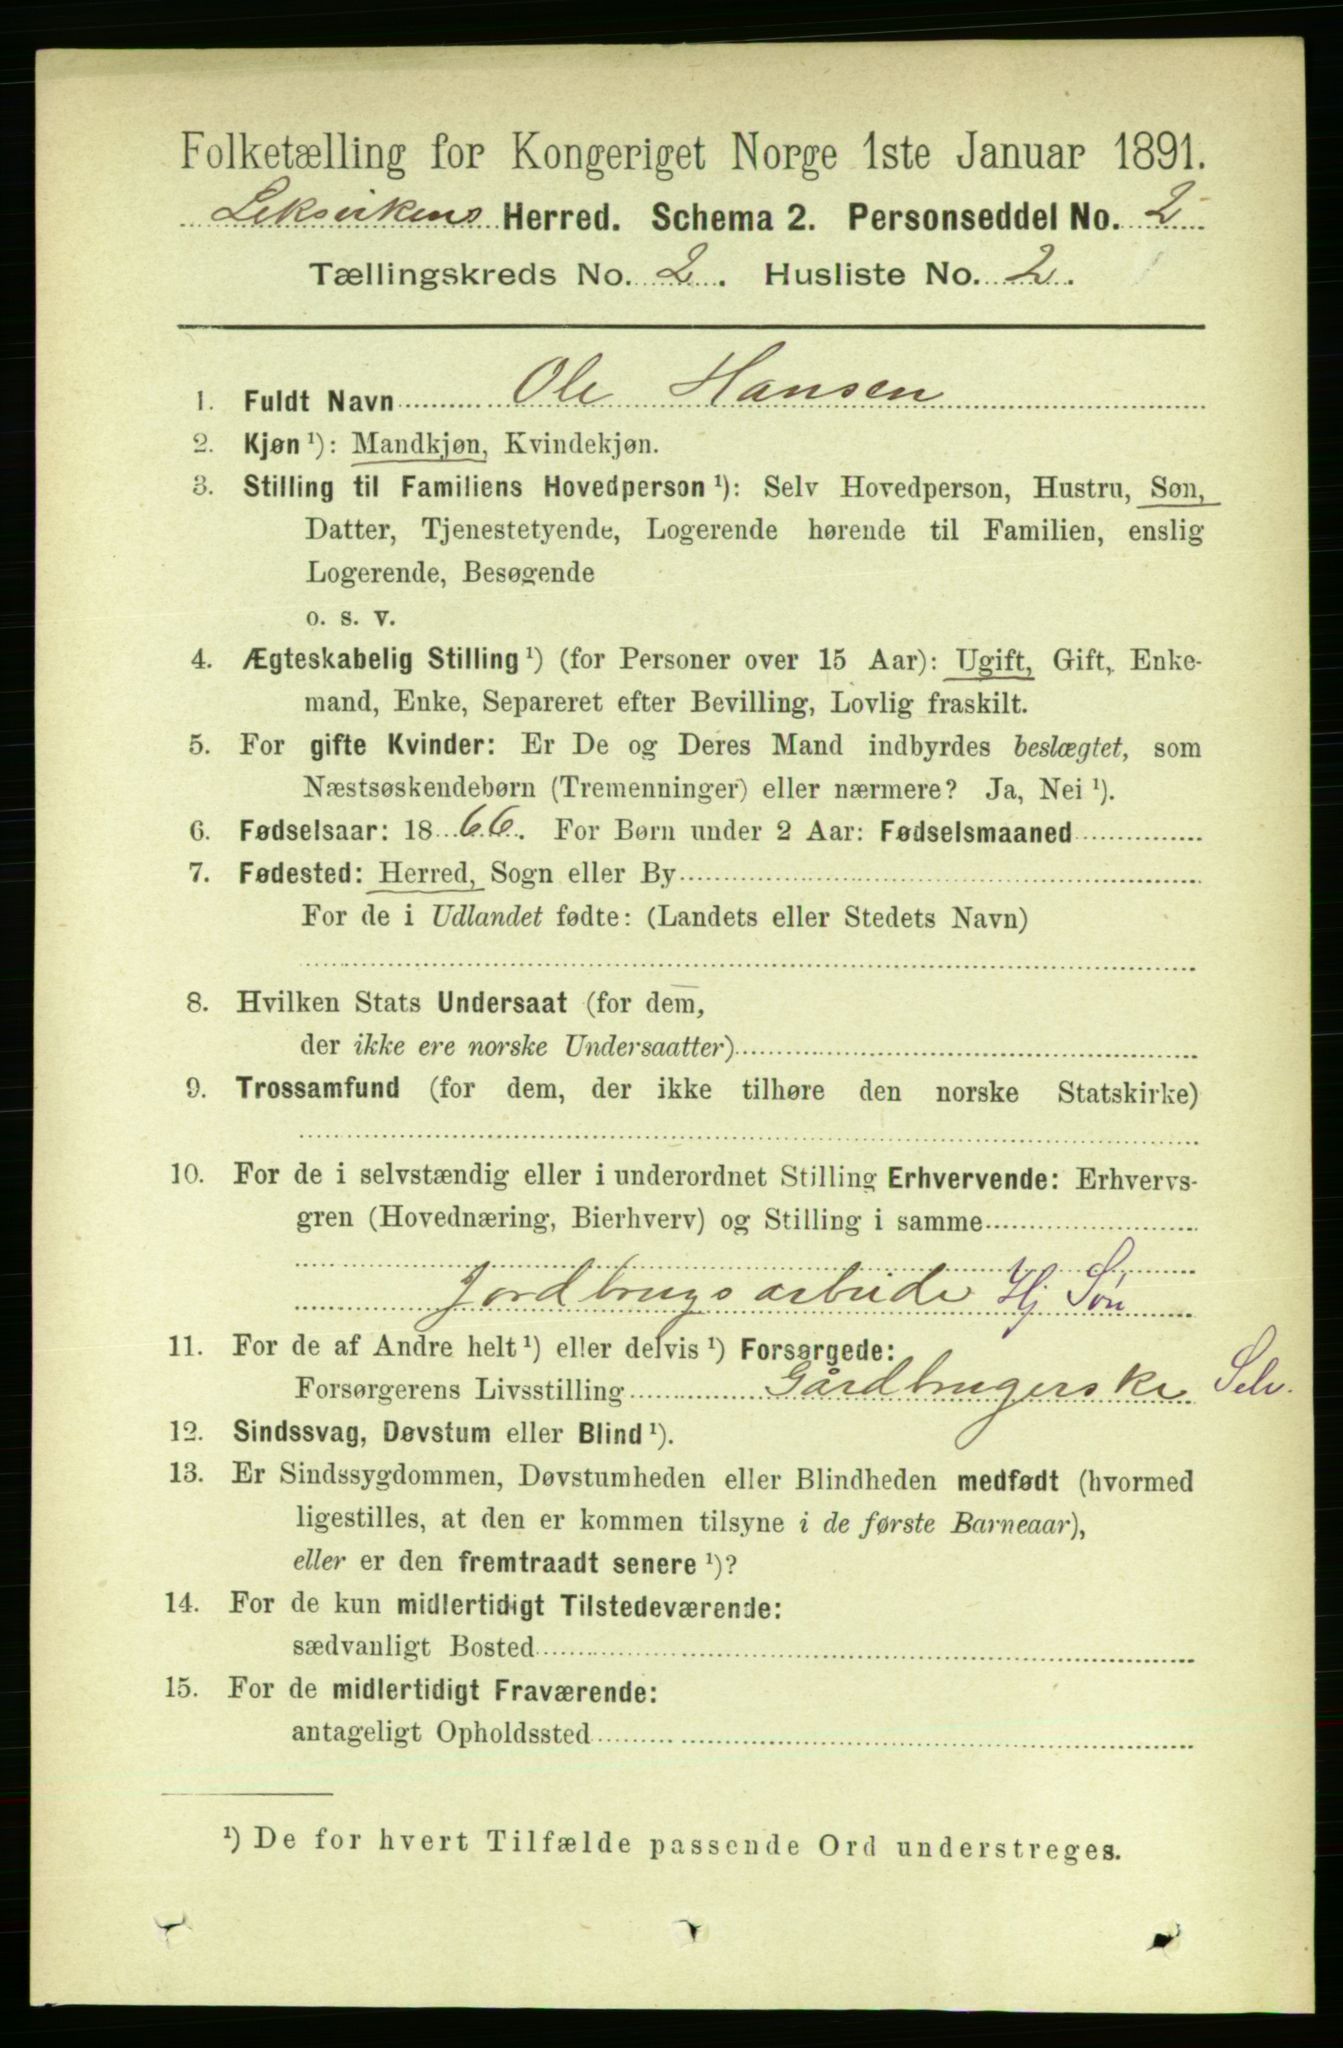 Folketælling for Kongeriget Norge 1ste Januar 1891.
Leksvikens Herred. Schema 2. Personseddel No. 2
Tællingskreds No. 2. Husliste No. 2.
1. Fuldt Navn Ole Hansen
2. Kjøn ¹): Mandkjøn, Kvindekjøn.
3. Stilling til Familiens Hovedperson ¹): Selv Hovedperson, Hustru, Søn,
Datter, Tjenestetyende, Logerende hørende til Familien, enslig
Logerende, Besøgende
o. s. v.
4. Ægteskabelig Stilling ¹) (for Personer over 15 Aar): Ugift, Gift, Enke-
mand, Enke, Separeret efter Bevilling, Lovlig fraskilt.
5. For gifte Kvinder: Er De og Deres Mand indbyrdes beslægtet, som
Næstsøskendebørn (Tremenninger) eller nærmere? Ja, Nei ¹).
6. Fødselsaar: 1866. For Børn under 2 Aar: Fødselsmaaned
7. Fødested: Herred, Sogn eller By
For de i Udlandet fødte: (Landets eller Stedets Navn)
8. Hvilken Stats Undersaat (for dem,
der ikke ere norske Undersaatter)
9. Trossamfund (for dem, der ikke tilhøre den norske Statskirke)
10. For de i selvstændig eller i underordnet Stilling Erhvervende: Erhvervs-
gren (Hovednæring, Bierhverv) og Stilling i samme
Jordbrugsarbeide Hj Søn
11. For de af Andre helt ¹) eller delvis ¹) Forsørgede:
Forsørgerens Livsstilling Gårdbrugerske Selv.
12. Sindssvag, Døvstum eller Blind ¹).
13. Er Sindssygdommen, Døvstumheden eller Blindheden medfødt (hvormed
ligestilles, at den er kommen tilsyne i de første Barneaar),
eller er den fremtraadt senere ¹)?
14. For de kun midlertidigt Tilstedeværende:
sædvanligt Bosted
15. For de midlertidigt Fraværende:
antageligt Opholdssted
¹) De for hvert Tilfælde passende Ord understreges.